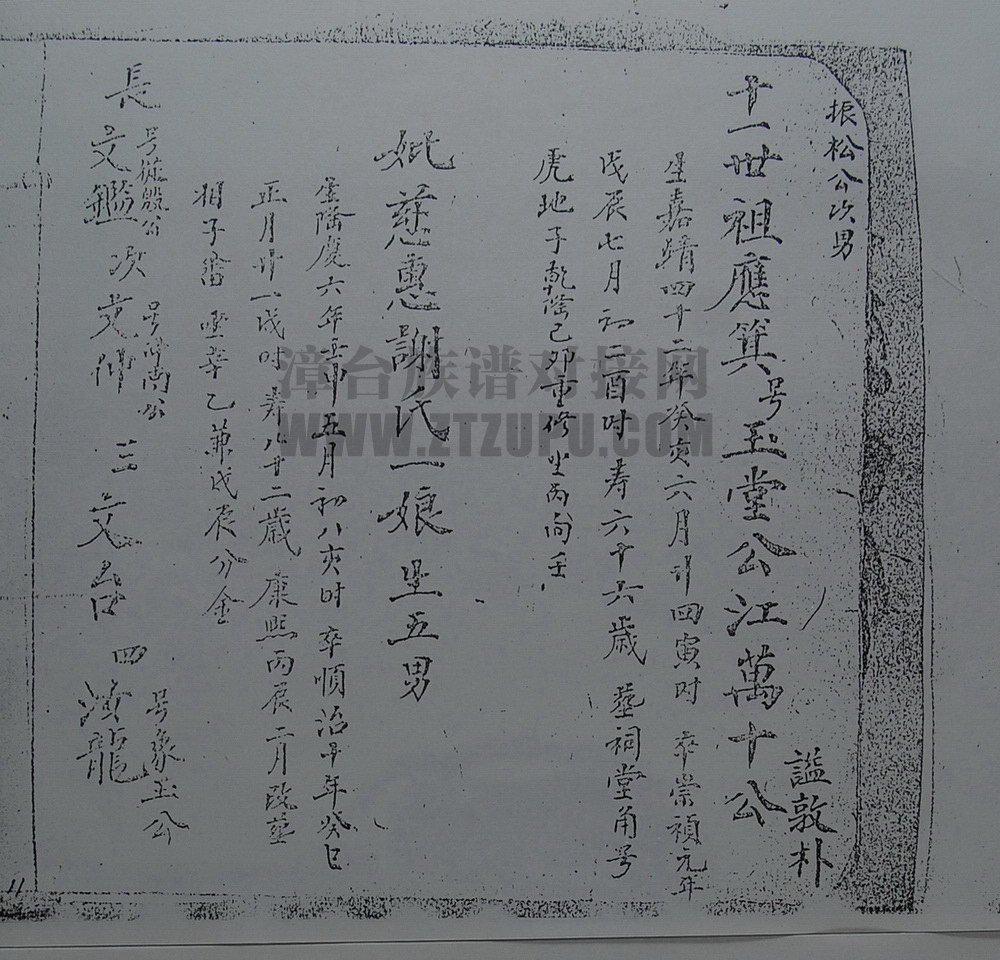 振松公次男
十一世祖應箕号玉堂公江萬十公
謚敦朴
生嘉靖四十二年癸亥六月廿四寅时 卒崇禎元年
戊辰七月初二酉时 寿六十六歲 葬祠堂角号
虎地子乾隆己卯重修坐丙向壬
妣慈惠謝氏一娘生五男
生隆慶六年壬申五月初八亥时 卒順治十年癸巳
正月廿一戌时寿八十二歲 康熙丙辰二月改葬
坐辛乙兼戊辰分金
長文鑑号從殷公 次文仲 三文台 四濱龍号象玉公
漳台族谱对接网
WWW.ZTZUPU.COM
11